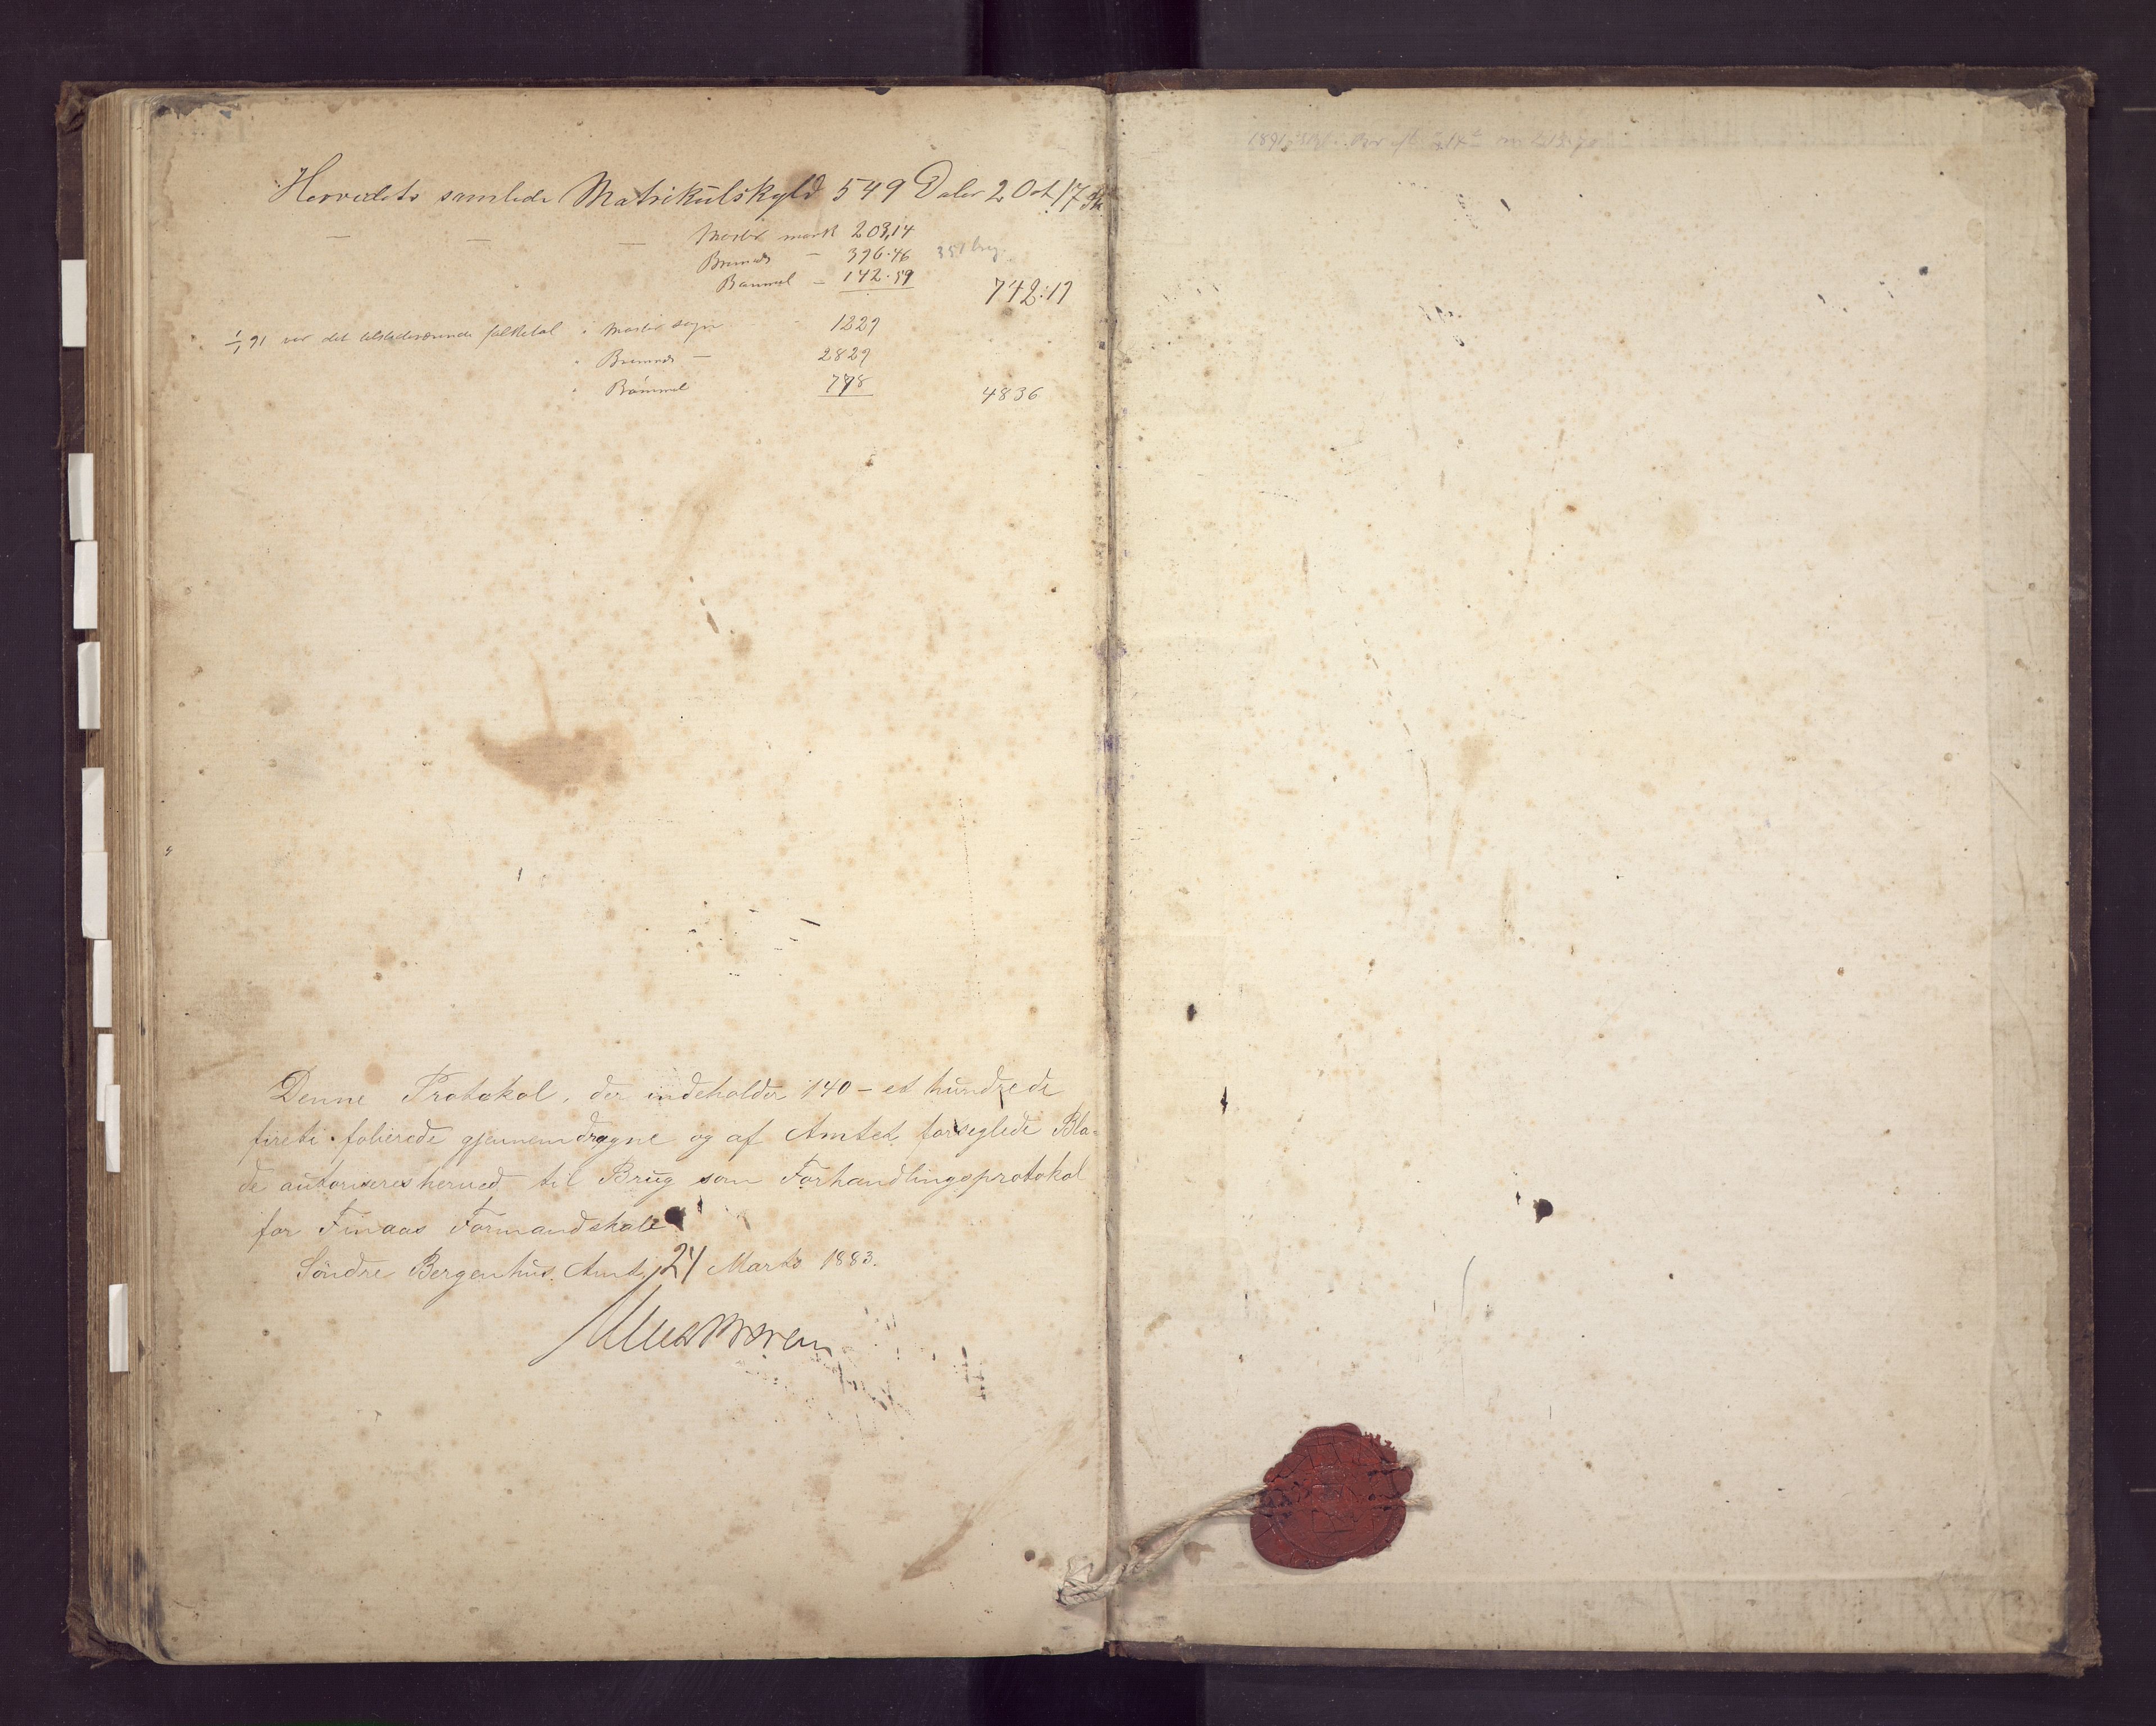 Herredets samlede Matrikulskyld 549 Daler 2 Ort 17 Sk
— — — Moster mark 203,14
Bremnæs — 396.46 351 brug
Bømmel — 142.59 742.19
1/1 91 var det tilstedeværende folketal i Moster sogn - 1229
" Bremnæs — 2829
" Bømmel 778 4836
Denne Protokol, der indeholder 140 – et hundrede
firti folierede gjennemdragne og af Amtet forseglede Bla-
de autoriseres herved til Brug som Forhandlingsprotokol
for Finaas Formandskab
Söndre Bergenhus Amt, 24 Marts 1883.